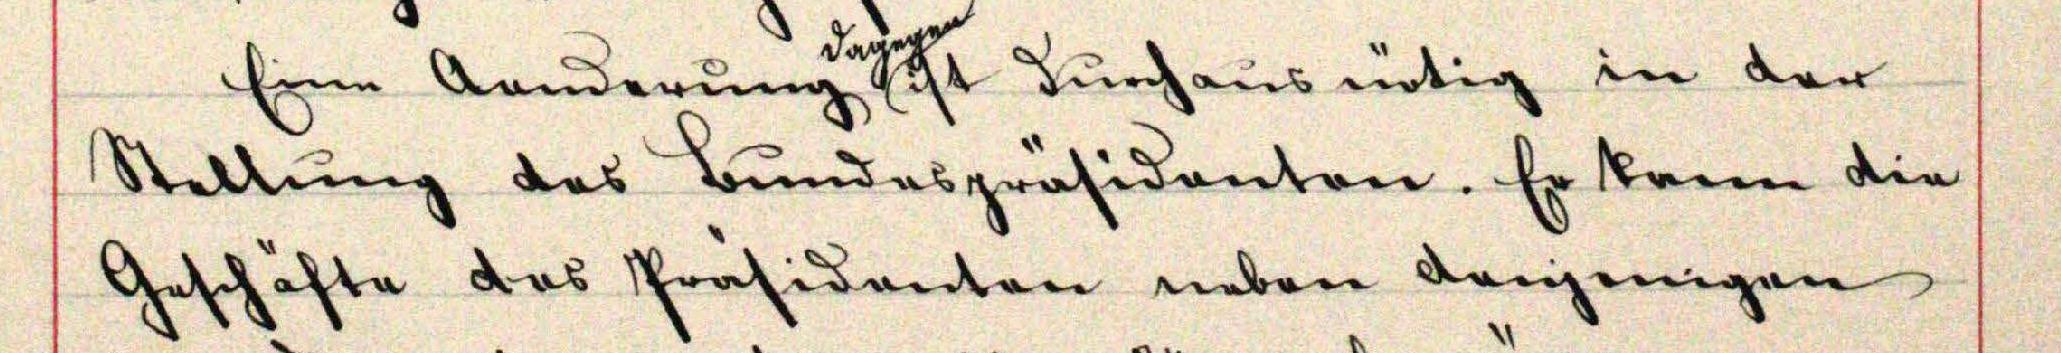 Eine Aenderung dagegen ist durchaus nötig in der
Stellung des Bundespräsidenten. Er kann die
Geschäfte des Präsidenten neben denjenigen